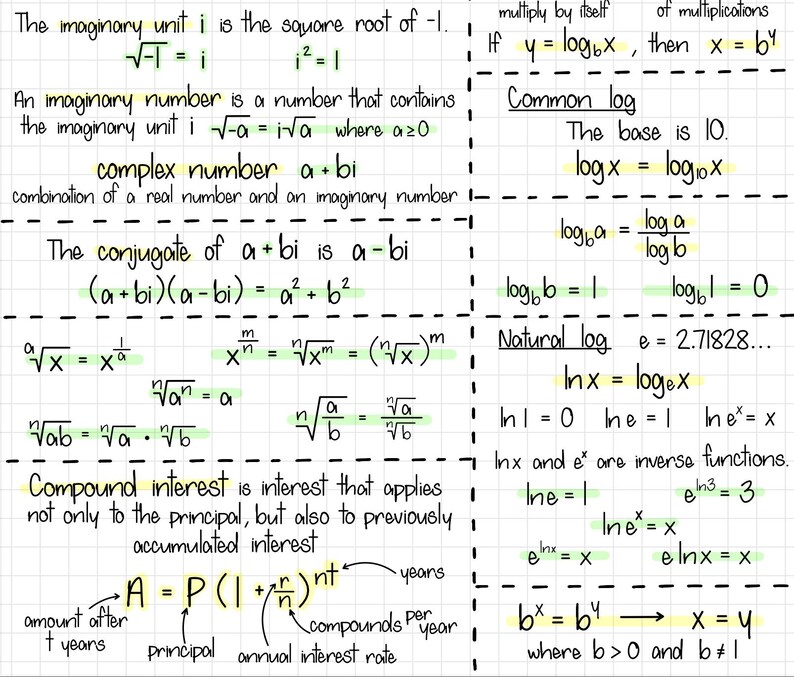 The imaginary unit i is the square root of -1.
√-1 = i i² = 1
An imaginary number is a number that contains
the imaginary unit i √-a = i√a where a ≥ 0
complex number a + bi
combination of a real number and an imaginary number
The conjugate of a + bi is a - bi
(a + bi)(a - bi) = a² + b²
ᵃ√x = x^(1/a) x^(m/n) = ⁿ√xᵐ = (ⁿ√x)ᵐ
ⁿ√aⁿ = a
ⁿ√ab = ⁿ√a · ⁿ√b ⁿ√(a/b) = ⁿ√a / ⁿ√b
Compound interest is interest that applies
not only to the principal, but also to previously
accumulated interest
A = P(1 + r/n)^nt
years
amount after
t years
principal
annual interest rate
compounds per
year
multiply by itself of multiplications
If y = log_b x, then x = b^y
Common log
The base is 10.
log x = log₁₀x
log_b a = log a / log b
log_b b = 1 log_b 1 = 0
Natural log e = 2.71828...
ln x = logₑx
ln 1 = 0 ln e = 1 ln eˣ = x
ln x and eˣ are inverse functions.
ln e = 1 e^(ln 3) = 3
ln eˣ = x
e^(ln x) = x e ln x = x
bˣ = b^y ⟶ x = y
where b > 0 and b ≠ 1